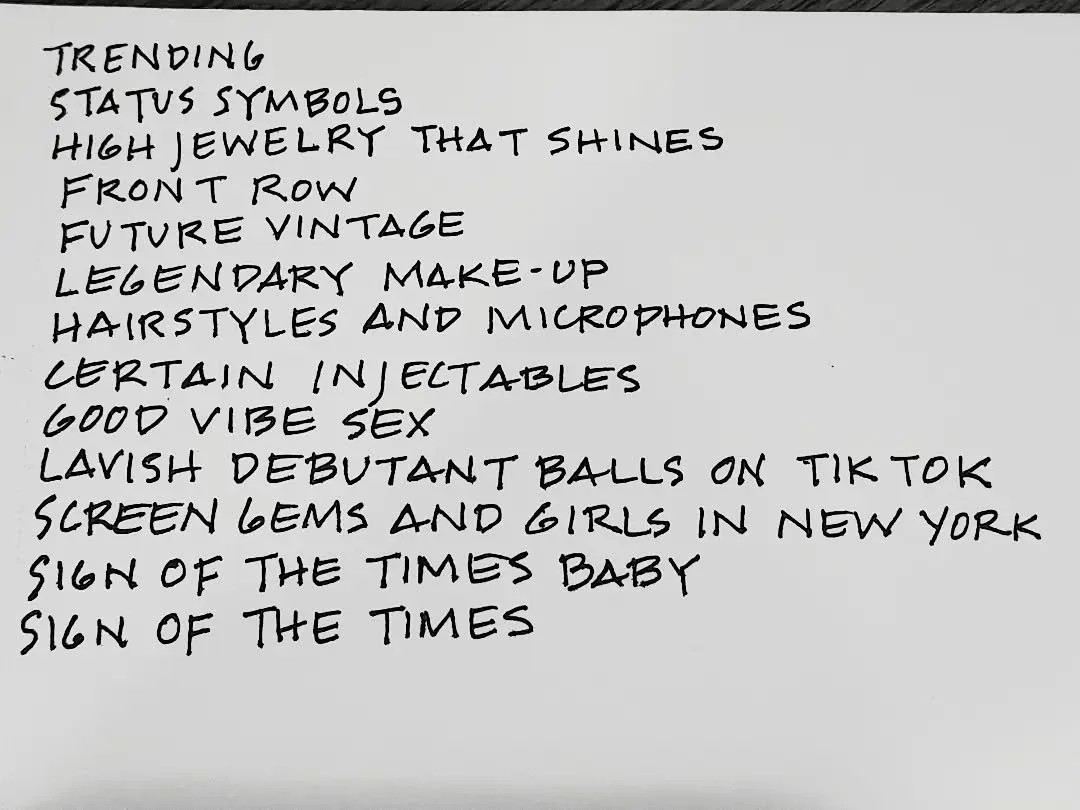 TRENDING
STATUS SYMBOLS
HIGH JEWELRY THAT SHINES
FRONT ROW
FUTURE VINTAGE
LEGENDARY MAKE-UP
HAIRSTYLES AND MICROPHONES
CERTAIN INJECTABLES
GOOD VIBE SEX
LAVISH DEBUTANT BALLS ON TIK TOK
SCREEN GEMS AND GIRLS IN NEW YORK
SIGN OF THE TIMES BABY
SIGN OF THE TIMES